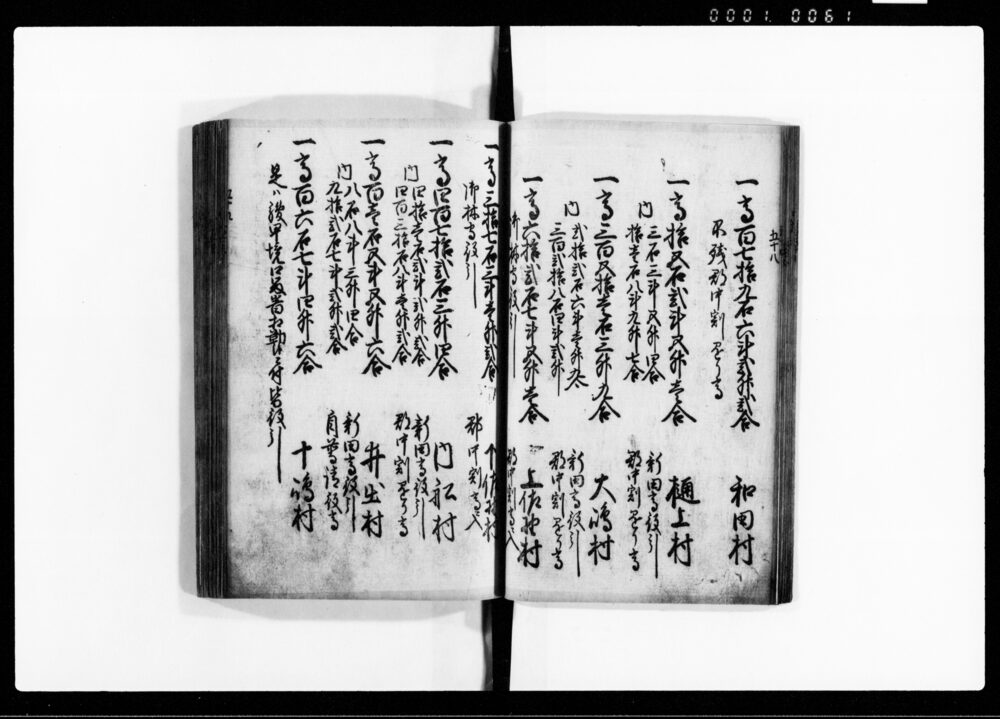 0001 0061
五十八
一高百七拾九石六斗弐升弐合 和田村
不残郡中割通り高
一高拾五石弐斗五升壱合 樋上村
内 三石三斗五升四合 新田高役引
拾壱石八斗九升七合 郡中割通り高
一高三百五拾壱石三升九合 大嶋村
内 弐拾弐石六斗壱升九合 新田高役引
三百弐拾八石四斗弐升 郡中割通り高
一高六拾弐石七斗五升壱合 上佐野村
御林守役引 郡中割高ニ入
一高三拾七石三斗壱升弐合 下佐野村
御林守役引 郡中割高ニ入
一高四百七拾弐石三升四合 門松村
内 四拾壱石弐斗弐升弐合 新田高役引
四百三拾石八斗壱升弐合 郡中割通り高
一高百壱石五斗五升六合 井出村
内 八石八斗三升四合 新田高役引
九拾弐石七斗弐升弐合 自普請役高
一高百六石七斗四升六合 十嶋村
是ハ駿甲境口留番相勤候ニ付皆役引